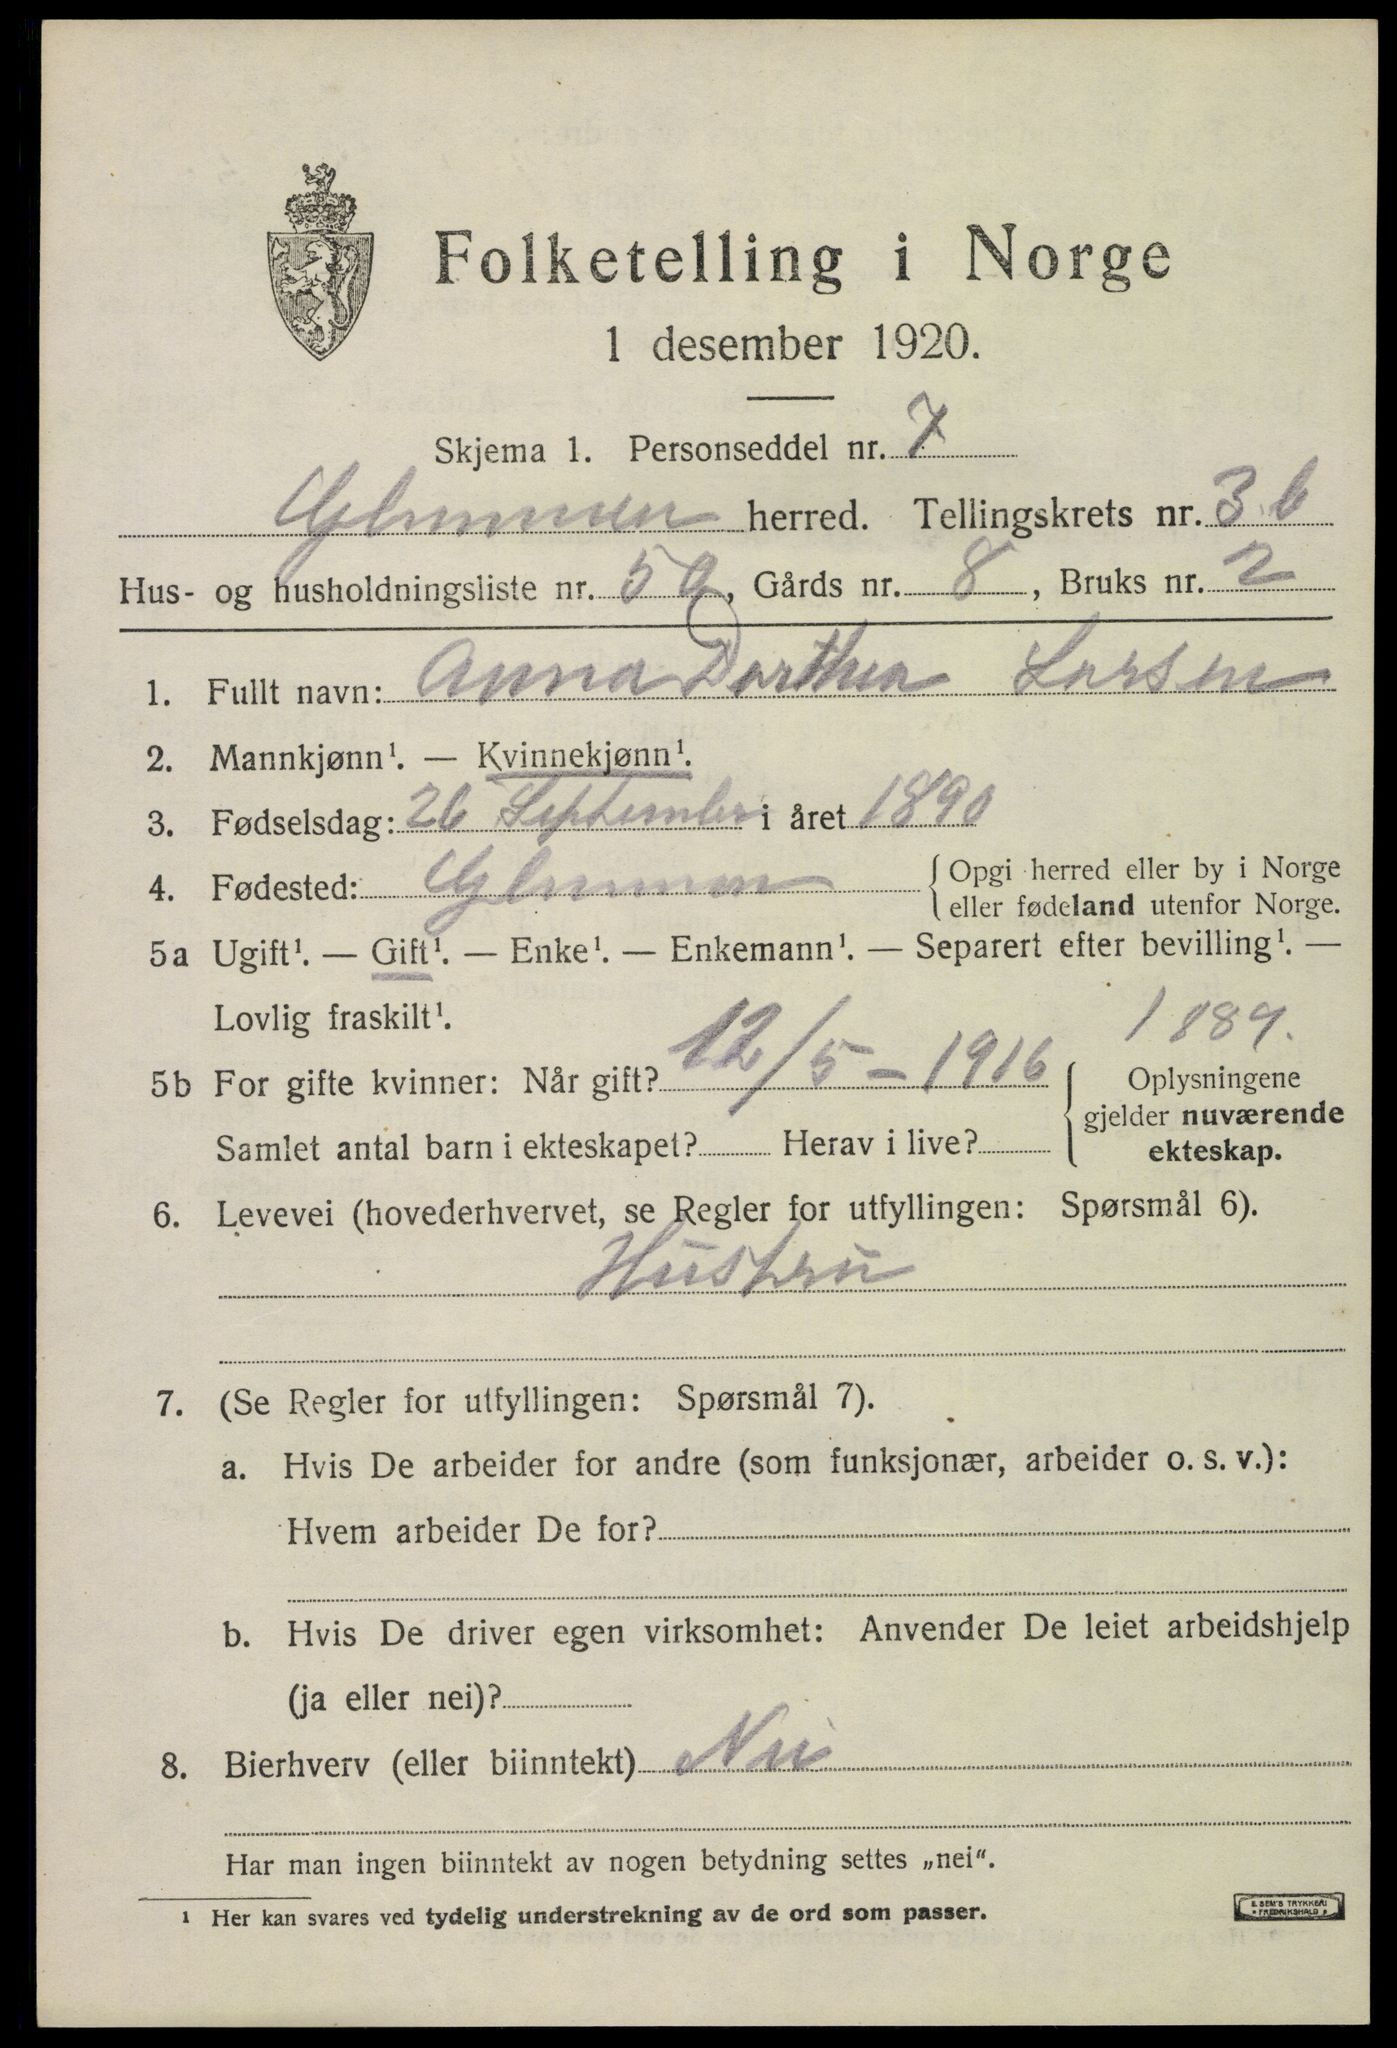 Folketelling i Norge
1 desember 1920.
Skjema 1. Personseddel nr. 7
Glemmen herred. Tellingskrets nr. 3 b
Hus- og husholdningsliste nr. 59, Gårds nr. 8, Bruks nr. 2
1. Fullt navn: Anna Darthea Larsen
2. Mannkjønn¹. — Kvinnekjønn¹.
3. Fødselsdag: 26 September i året 1890
4. Fødested: Glemmen { Opgi herred eller by i Norge
eller fødeland utenfor Norge.
5a Ugift¹. — Gift¹. — Enke¹. — Enkemann¹. — Separert efter bevilling¹. —
Lovlig fraskilt¹.
5b For gifte kvinner: Når gift? 12/5 – 1916 { Oplysningene
gjelder nuværende
Samlet antal barn i ekteskapet? Herav i live?
ekteskap.
6. Levevei (hovederhvervet, se Regler for utfyllingen: Spørsmål 6).
Hustru
7. (Se Regler for utfyllingen: Spørsmål 7).
a. Hvis De arbeider for andre (som funksjonær, arbeider o. s. v.):
Hvem arbeider De for?
b. Hvis De driver egen virksomhet: Anvender De leiet arbeidshjelp
(ja eller nei)?
8. Bierhverv (eller biinntekt) Nei
Har man ingen biinntekt av nogen betydning settes „nei".
¹ Her kan svares ved tydelig understrekning av de ord som passer.
E. SEM'S TRYKKERI
FREDRIKSHALD